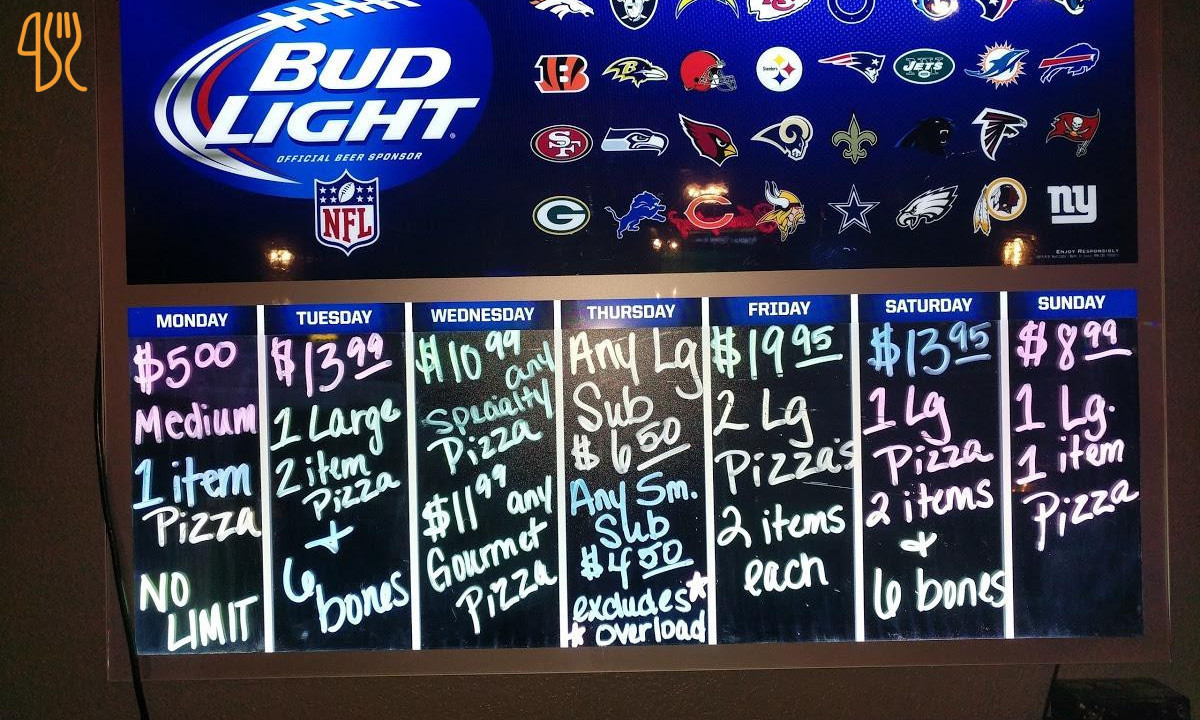 BUD
LIGHT
OFFICIAL BEER SPONSOR
NFL
Steelers
JETS
SF
G
C
ny
ENJOY RESPONSIBLY
MONDAY
$500
Medium
1 item
Pizza
NO
LIMIT
TUESDAY
$13 99
1 Large
2 item
Pizza
+
6 bones
WEDNESDAY
$10 99 any
Specialty
Pizza
$11 99 any
Gourmet
Pizza
THURSDAY
Any Lg
Sub
$6 50
Any Sm.
Sub
$4 50
excludes*
* overload
FRIDAY
$19 95
2 Lg
Pizza's
2 items
each
SATURDAY
$13 95
1 Lg
Pizza
2 items
+
6 bones
SUNDAY
$8 99
1 Lg.
1 item
Pizza